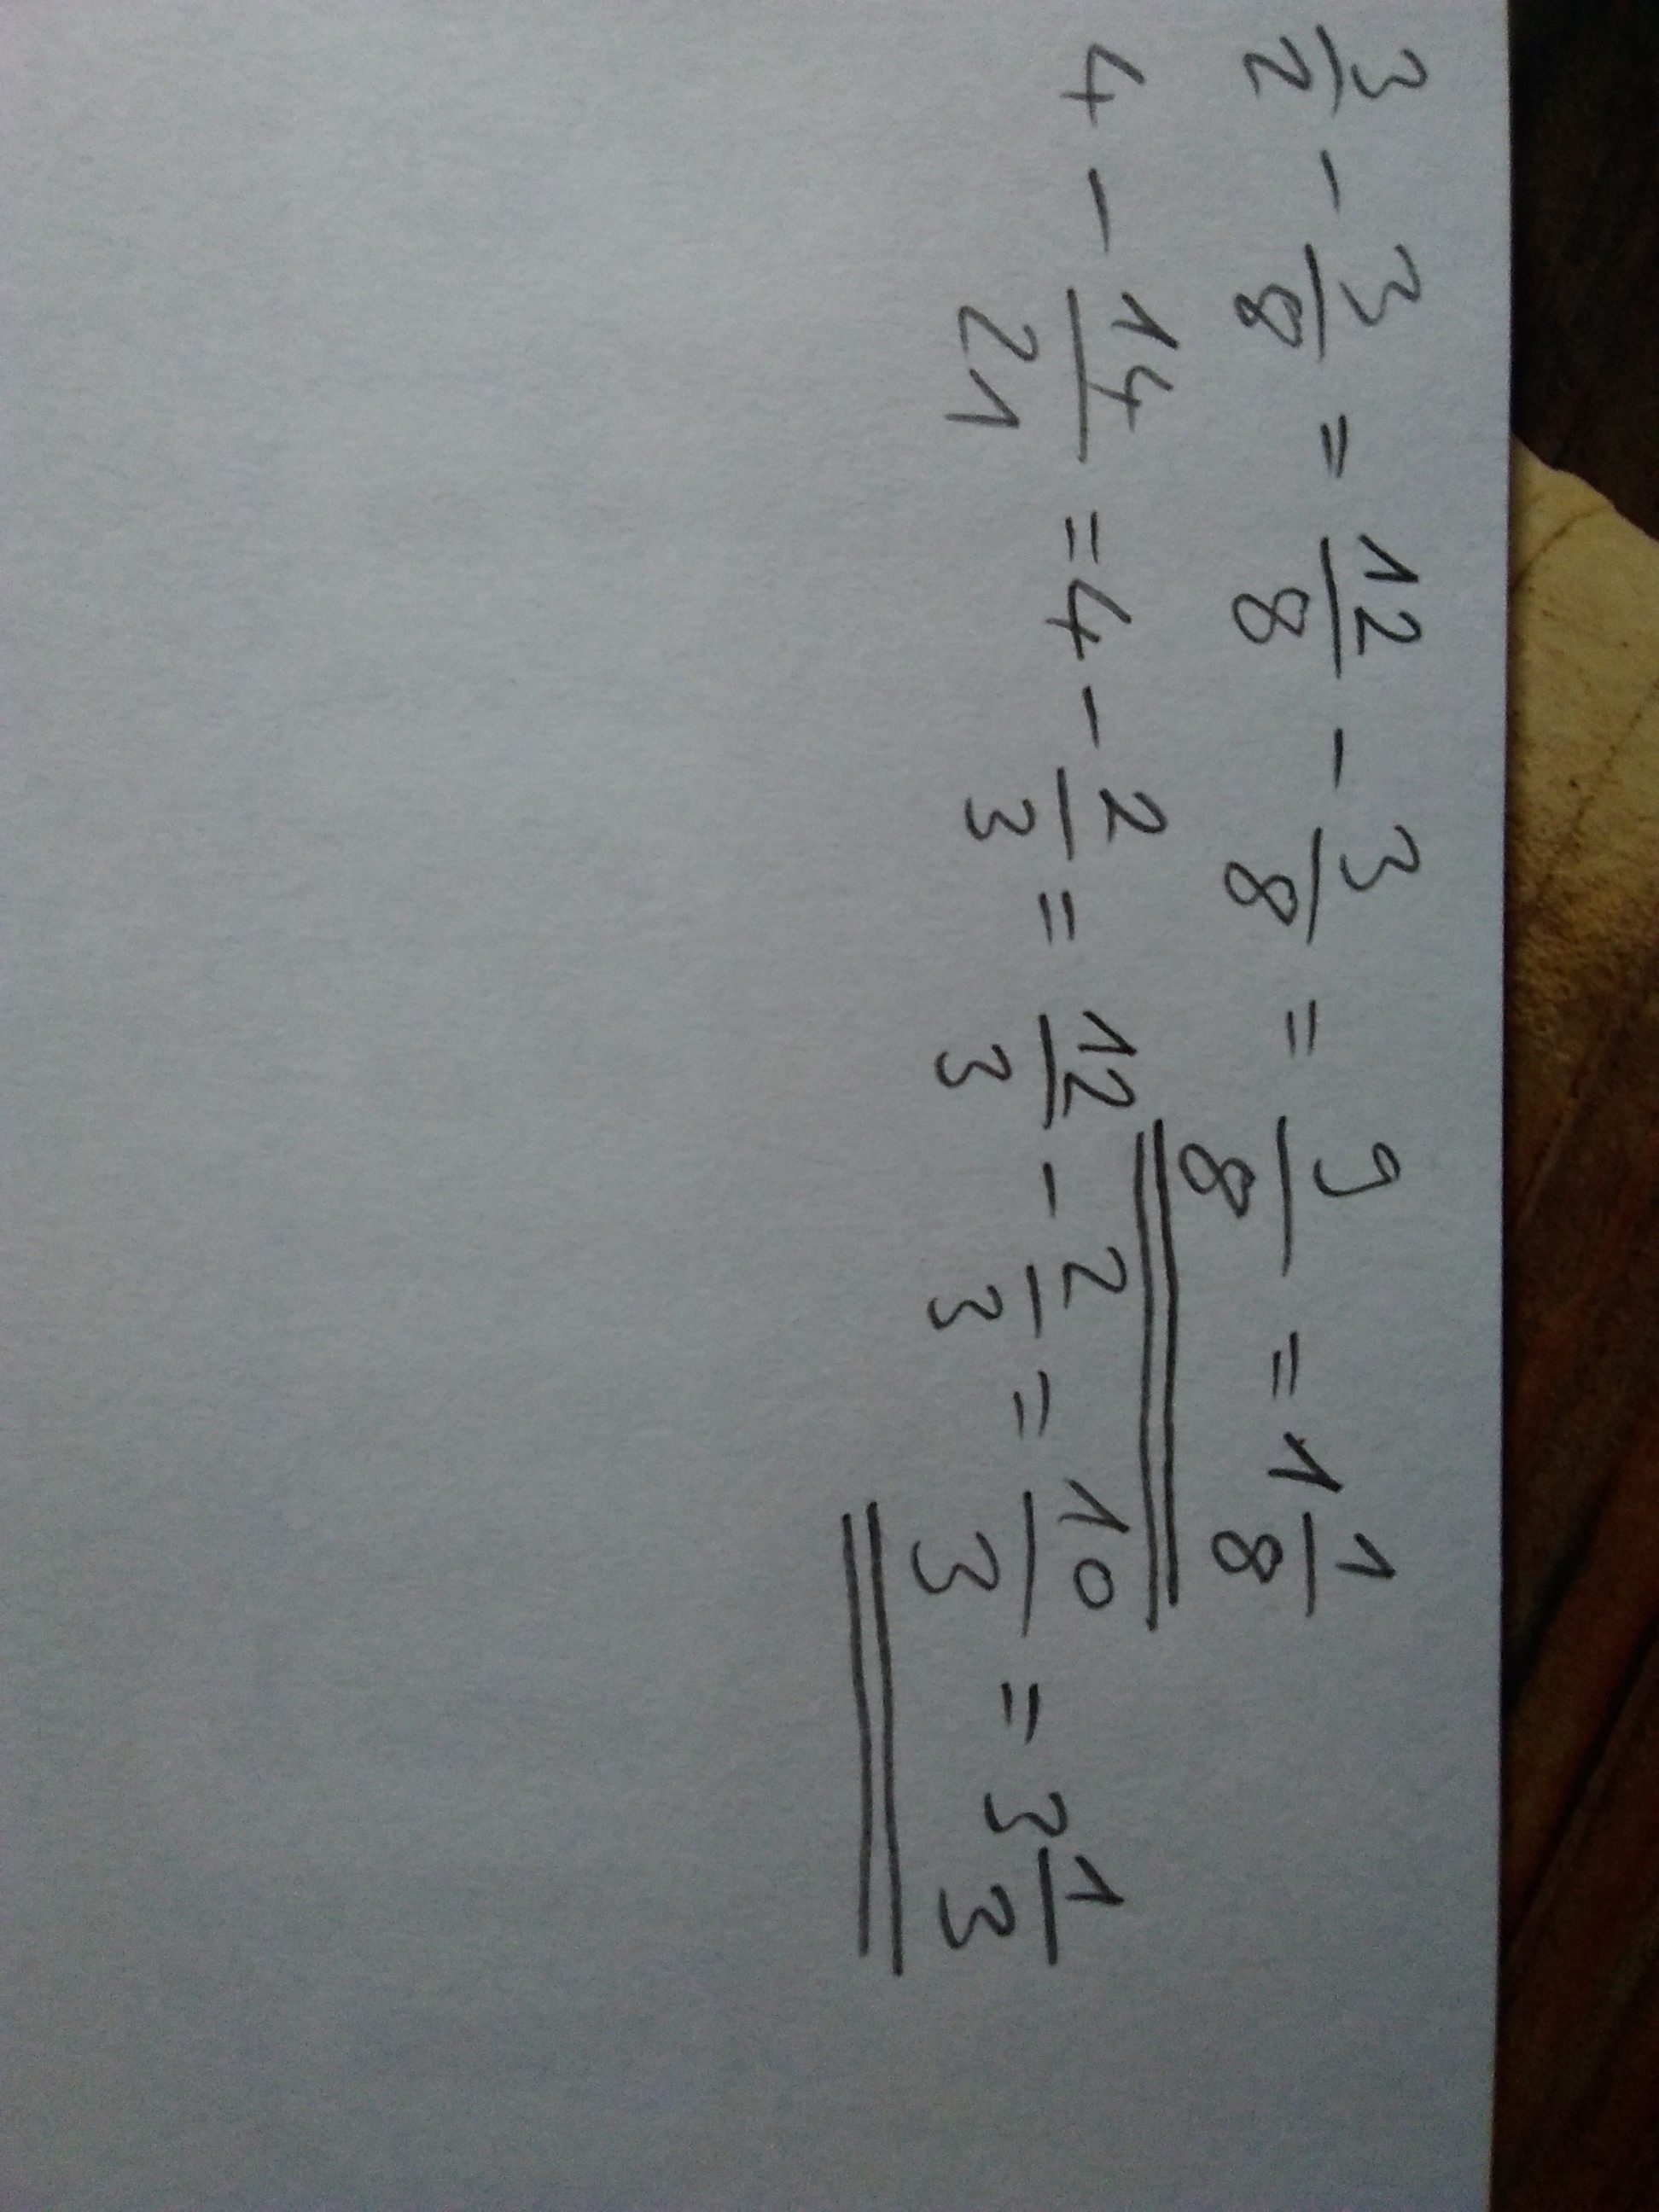 3/2 - 3/8 = 12/8 - 3/8 = 9/8 = 1 1/8
4 - 14/21 = 4 - 2/3 = 12/3 - 2/3 = 10/3 = 3 1/3